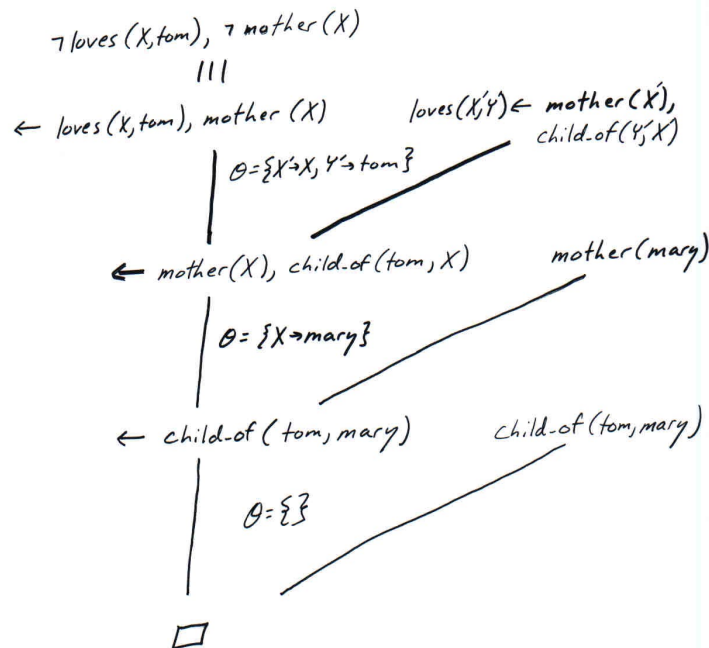 ¬loves(X,tom), ¬mother(X)
|||
← loves(X,tom), mother(X)
loves(X',Y') ← mother(X'),
child_of(Y',X')
θ={X'→X, Y'→tom}
← mother(X), child_of(tom, X)
mother(mary)
θ= {X→mary}
← child_of(tom, mary)
child_of(tom, mary)
θ={}